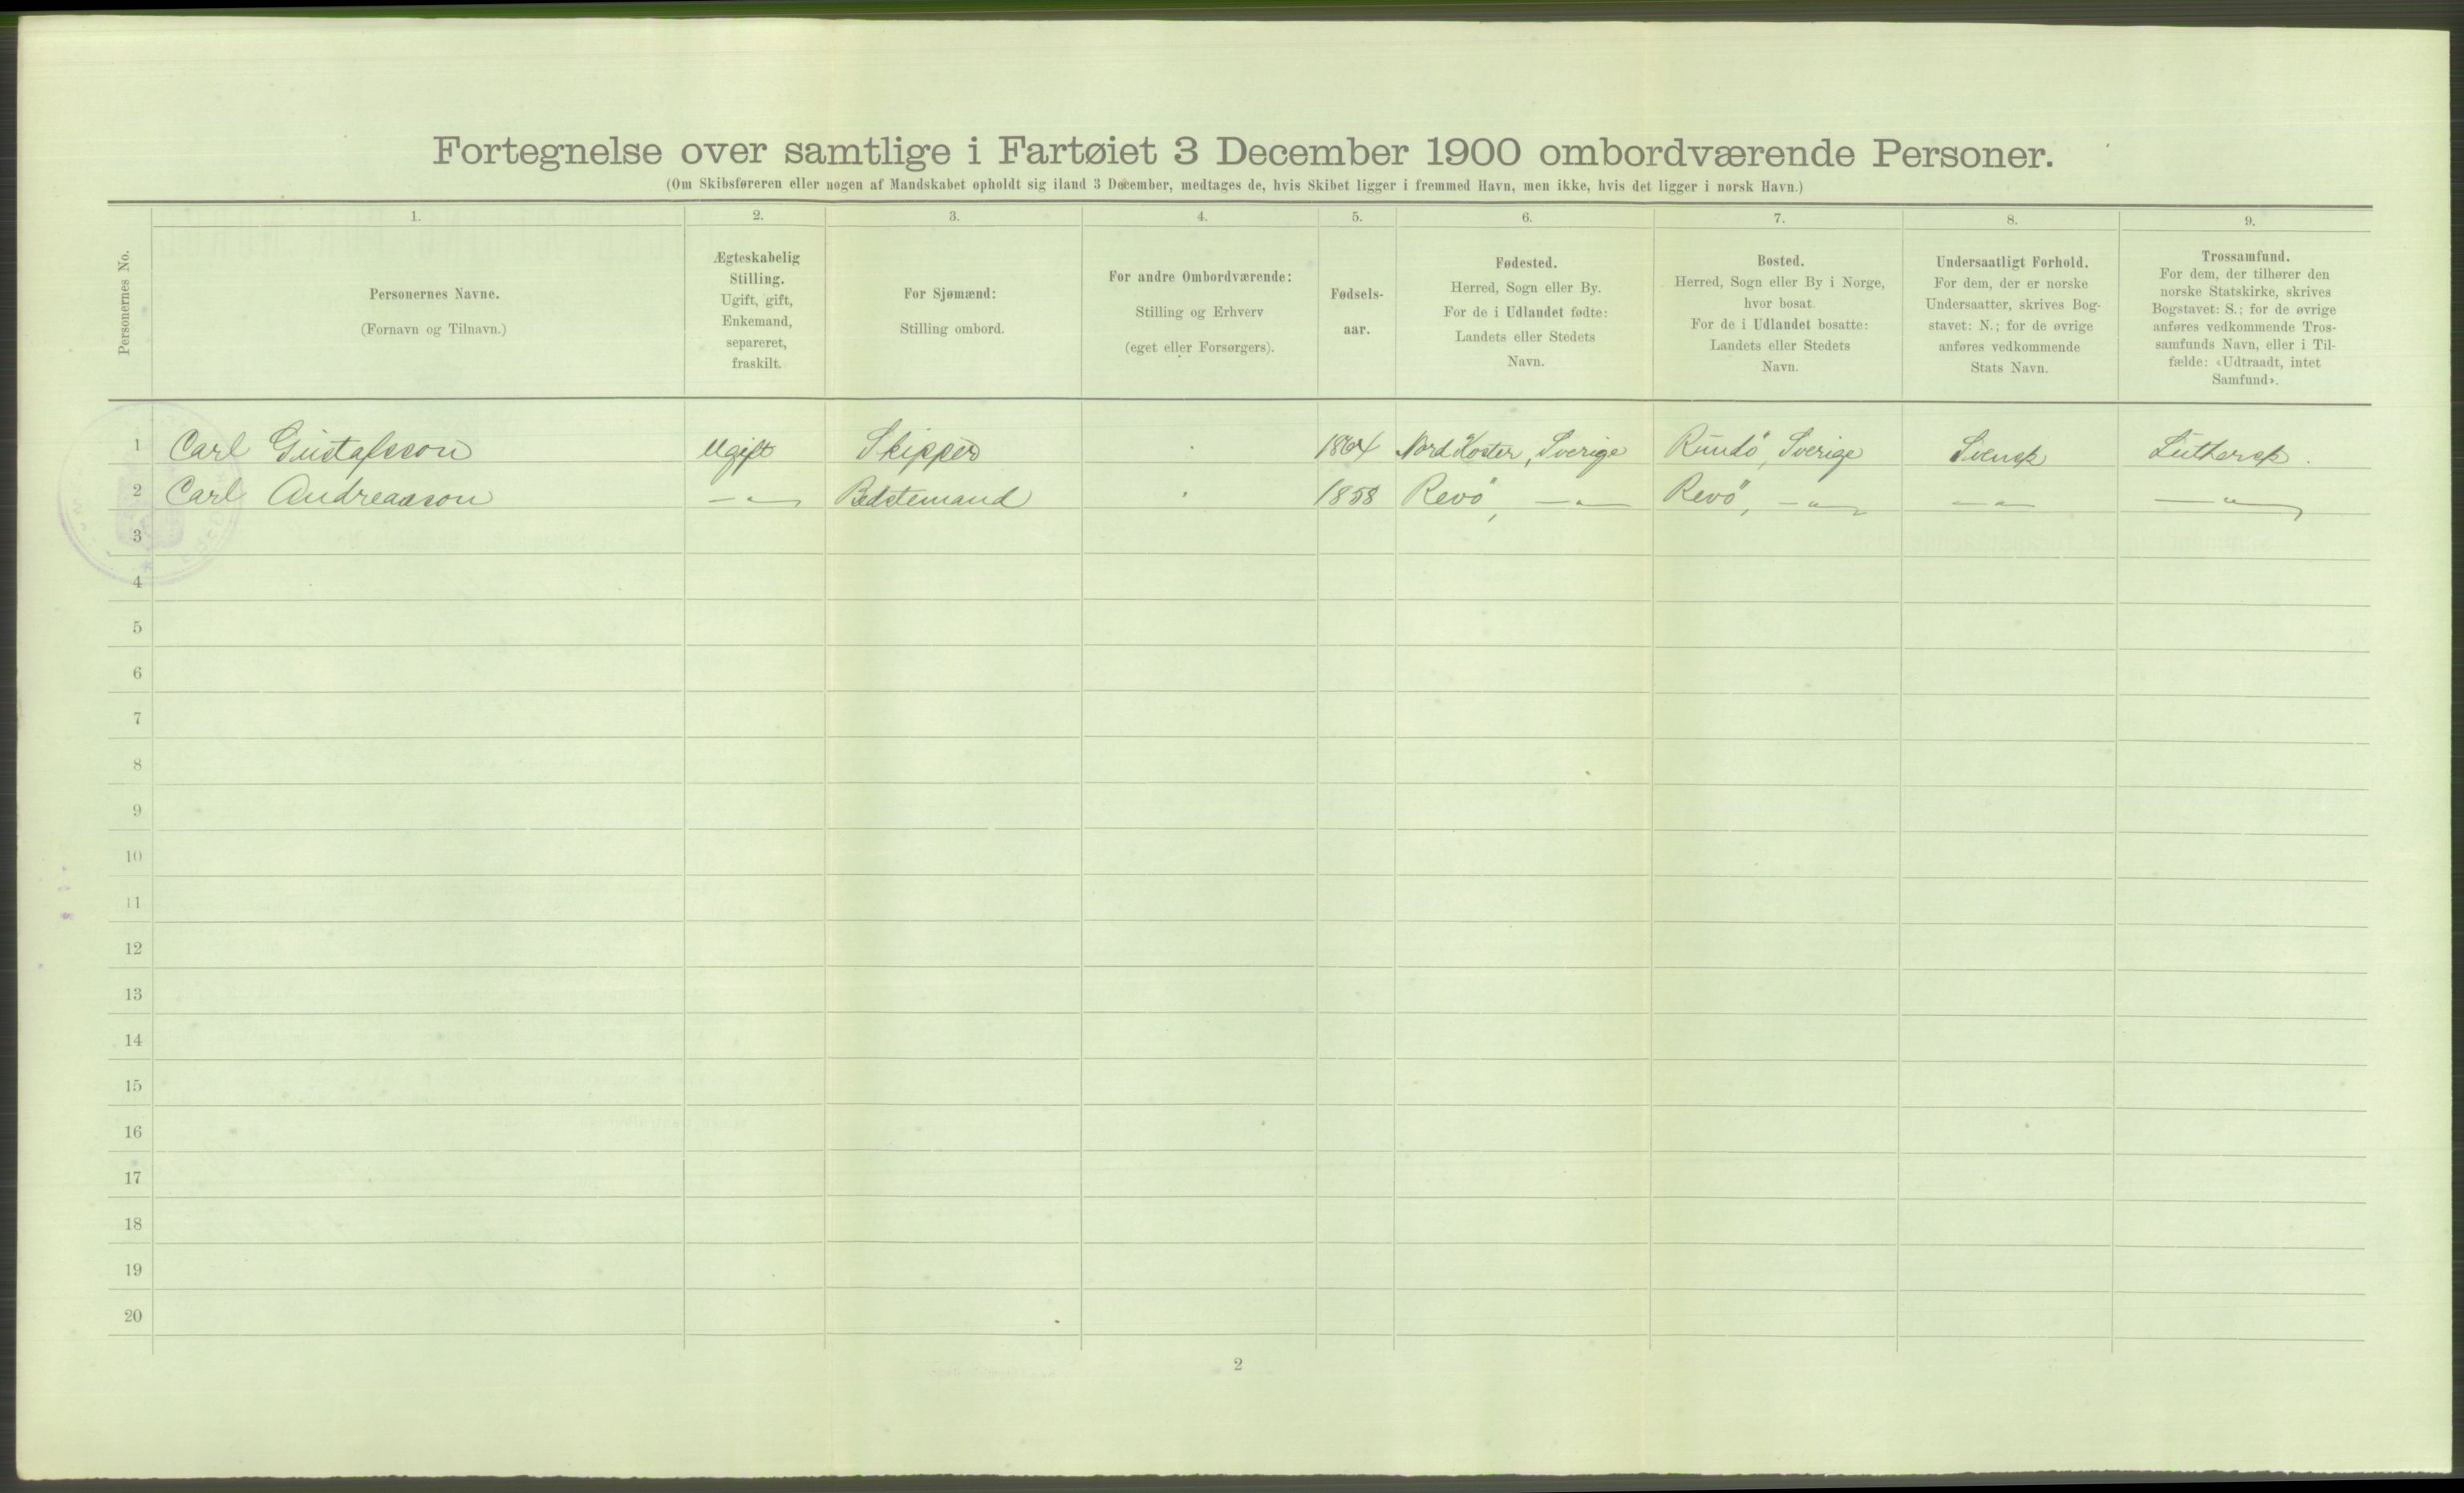 Fortegnelse over samtlige i Fartøiet 3 December 1900 ombordværende Personer.
(Om Skibsføreren eller nogen af Mandskabet opholdt sig iland 3 December, medtages de, hvis Skibet ligger i fremmed Havn, men ikke, hvis det ligger i norsk Havn.)
Personernes No.
1.
Personernes Navne.
(Fornavn og Tilnavn.)
2.
Ægteskabelig
Stilling.
Ugift, gift,
Enkemand,
separeret,
fraskilt.
3.
For Sjømænd:
Stilling ombord.
4.
For andre Ombordværende:
Stilling og Erhverv
(eget eller Forsørgers).
5.
Fødsels-
aar.
6.
Fødested.
Herred, Sogn eller By.
For de i Udlandet fødte:
Landets eller Stedets
Navn.
7.
Bosted.
Herred, Sogn eller By i Norge,
hvor bosat.
For de i Udlandet bosatte:
Landets eller Stedets
Navn.
8.
Undersaatligt Forhold.
For dem, der er norske
Undersaatter, skrives Bog-
stavet: N.; for de øvrige
anføres vedkommende
Stats Navn.
9.
Trossamfund.
For dem, der tilhører den
norske Statskirke, skrives
Bogstavet: S.; for de øvrige
anføres vedkommende Tros-
samfunds Navn, eller i Til-
fælde: «Udtraadt, intet
Samfund».
1 Carl Gustafsson Ugift Skipper 1864 Nord Koster, Sverige Rundö, Sverige Svensk Luthersk.
2 Carl Andreasson —"— Bedstemand 1858 Revö, —"— Revö, —"— —"— —"—
3
4
5
6
7
8
9
10
11
12
13
14
15
16
17
18
19
20
2